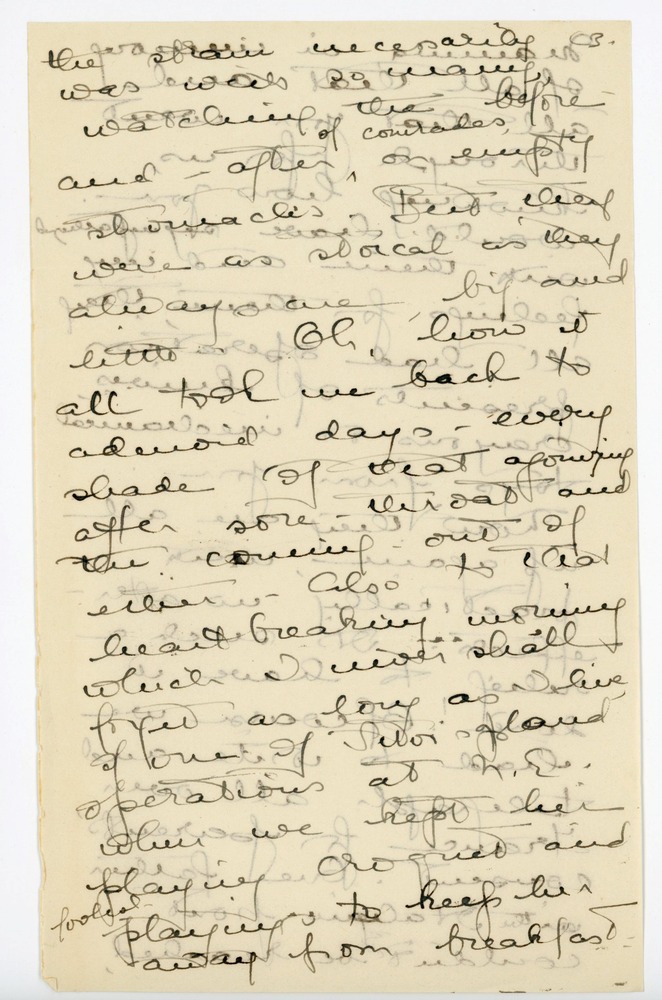 the strain necessarily
was was so many,
watching the before
of comrades,
and - after, on empty
stomachs. But they
were as stoical as they
always are, big and
little - Oh, how it
all took me back to
adenoid days - every
shade of that agonizing
after sore-throat and
the coming out of
ether - Also to that
heart breaking morning
which I never shall
forget as long as I live,
of one of gland
operations at N.E.
when we kept her
playing croquet and
fooled
playing to keep her
away from breakfast -